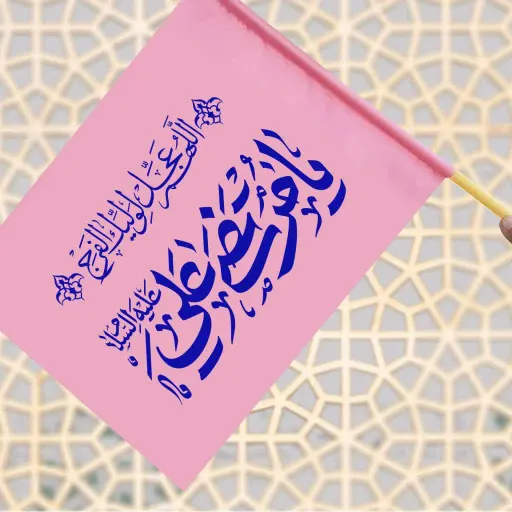 اللهم عجل لولیک الفرج
یا مرتضی علی
علیه السلام